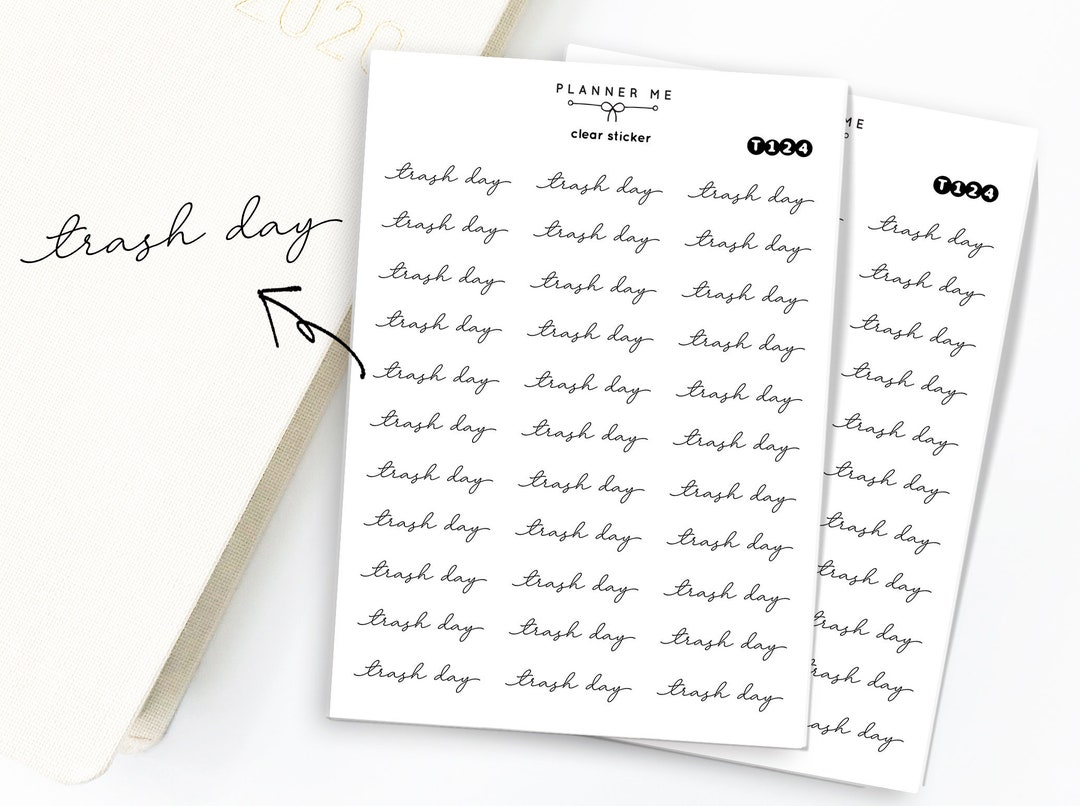 2020
trash day
PLANNER ME
clear sticker
T124
trash day trash day trash day
trash day trash day trash day
trash day trash day trash day
trash day trash day trash day
trash day trash day trash day
trash day trash day trash day
trash day trash day trash day
trash day trash day trash day
trash day trash day trash day
trash day trash day trash day
trash day trash day trash day
ME
T124
trash day
trash day
trash day
trash day
trash day
trash day
trash day
trash day
trash day
rash day
ash day